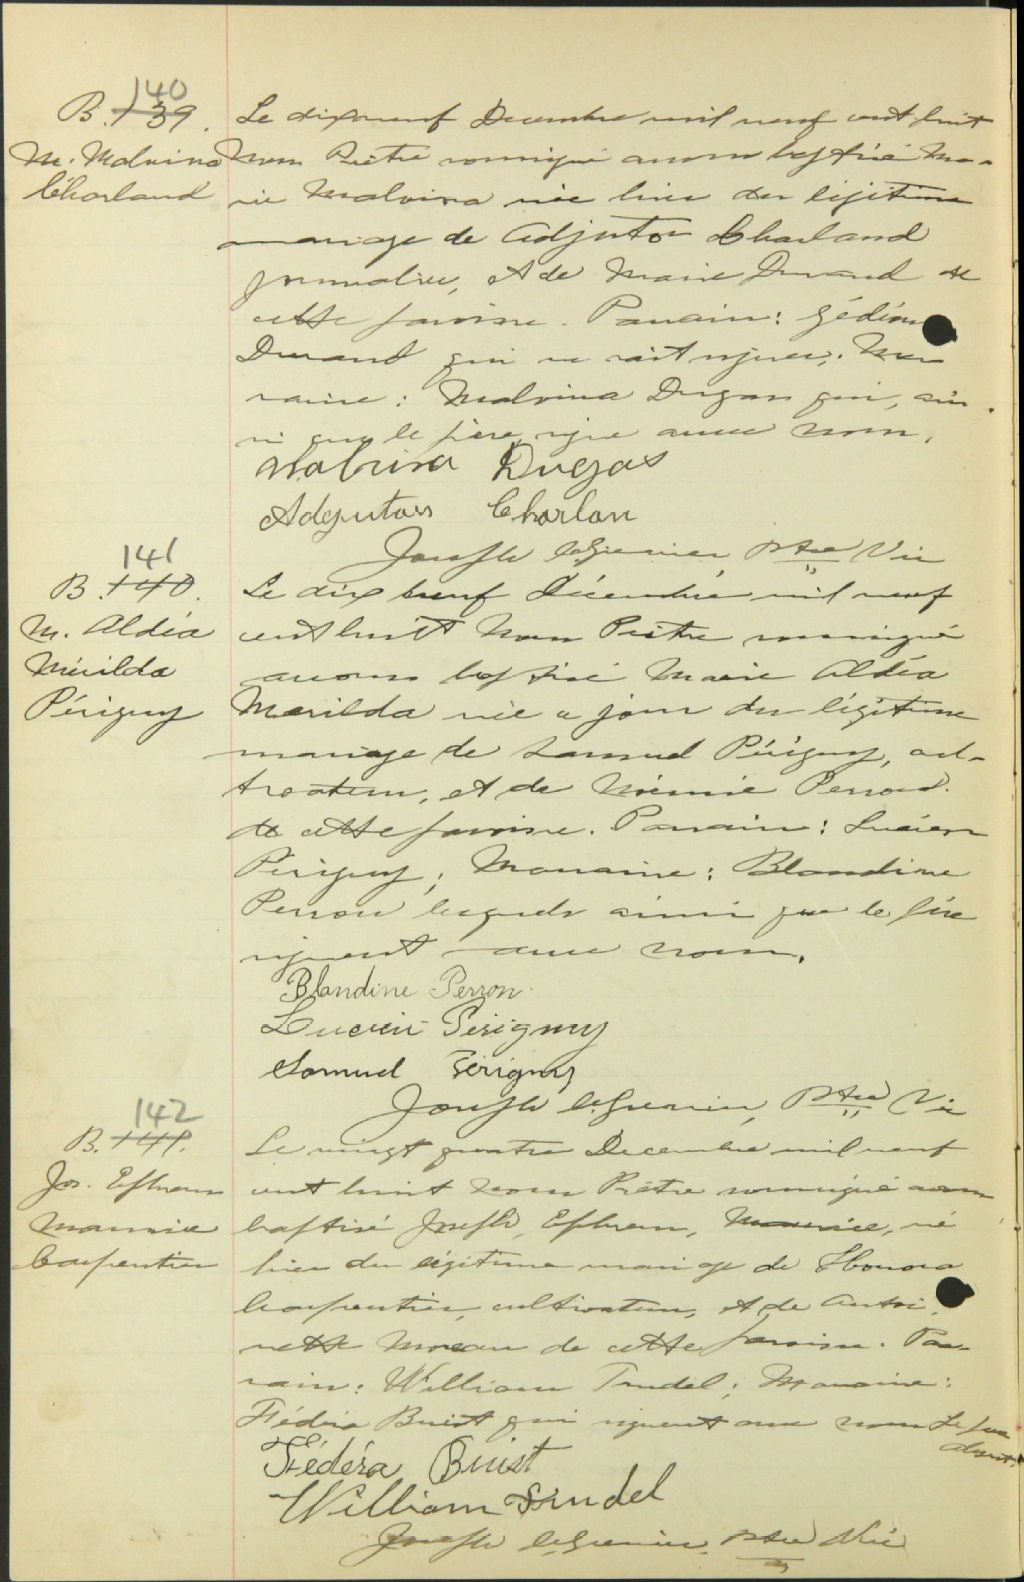 140
B. 139.
M. Malvina
Charland
Le dix neuf Decembre mil neuf cent huit
Nous Prêtre soussigné avons baptisé Ma-
rie Malvina née hier du légitime
mariage de Adjutor Charland
journalier, et de Marie Durand de
cette paroisse. Parrain: Gédéon
Durand qui ne sait signer; Mar
raine: Malvina Dugas qui, ain-
si que le père, signe avec nous.
Malvina Dugas
Adjutor Charlan
Joseph Ptre Vic
141
B. 140.
M. Aldéa
Mérilda
Périgny
Le dix neuf Décembre mil neuf
cent huit Nous Prêtre soussigné
avons baptisé Marie Aldéa
Merilda née ce jour du légitime
mariage de Samuel Périgny, cul-
tivateur, et de Noémie Perron
de cette paroisse. Parrain: Lucien
Périgny; Marraine: Blandine
Perron lesquels ainsi que le père
signent avec nous.
Blandine Perron.
Lucien Perigny
Samuel Périgny
Joseph Ptre Vic
142
B. 141.
Jos. Ephrem
Maurice
Carpentier
Le vingt quatre Decembre mil neuf
cent huit Nous Prêtre soussigné avons
baptisé Joseph, Ephrem, Maurice, né
hier du légitime mariage de Honora
Carpentier, cultivateur, et de Antoi
nette Moreau de cette paroisse. Par-
rain: William Trudel; Marraine:
Fédéra Buist qui signent avec nous Le père
absent.
Fédéra Buist
William Trudel
Joseph Ptre Vic